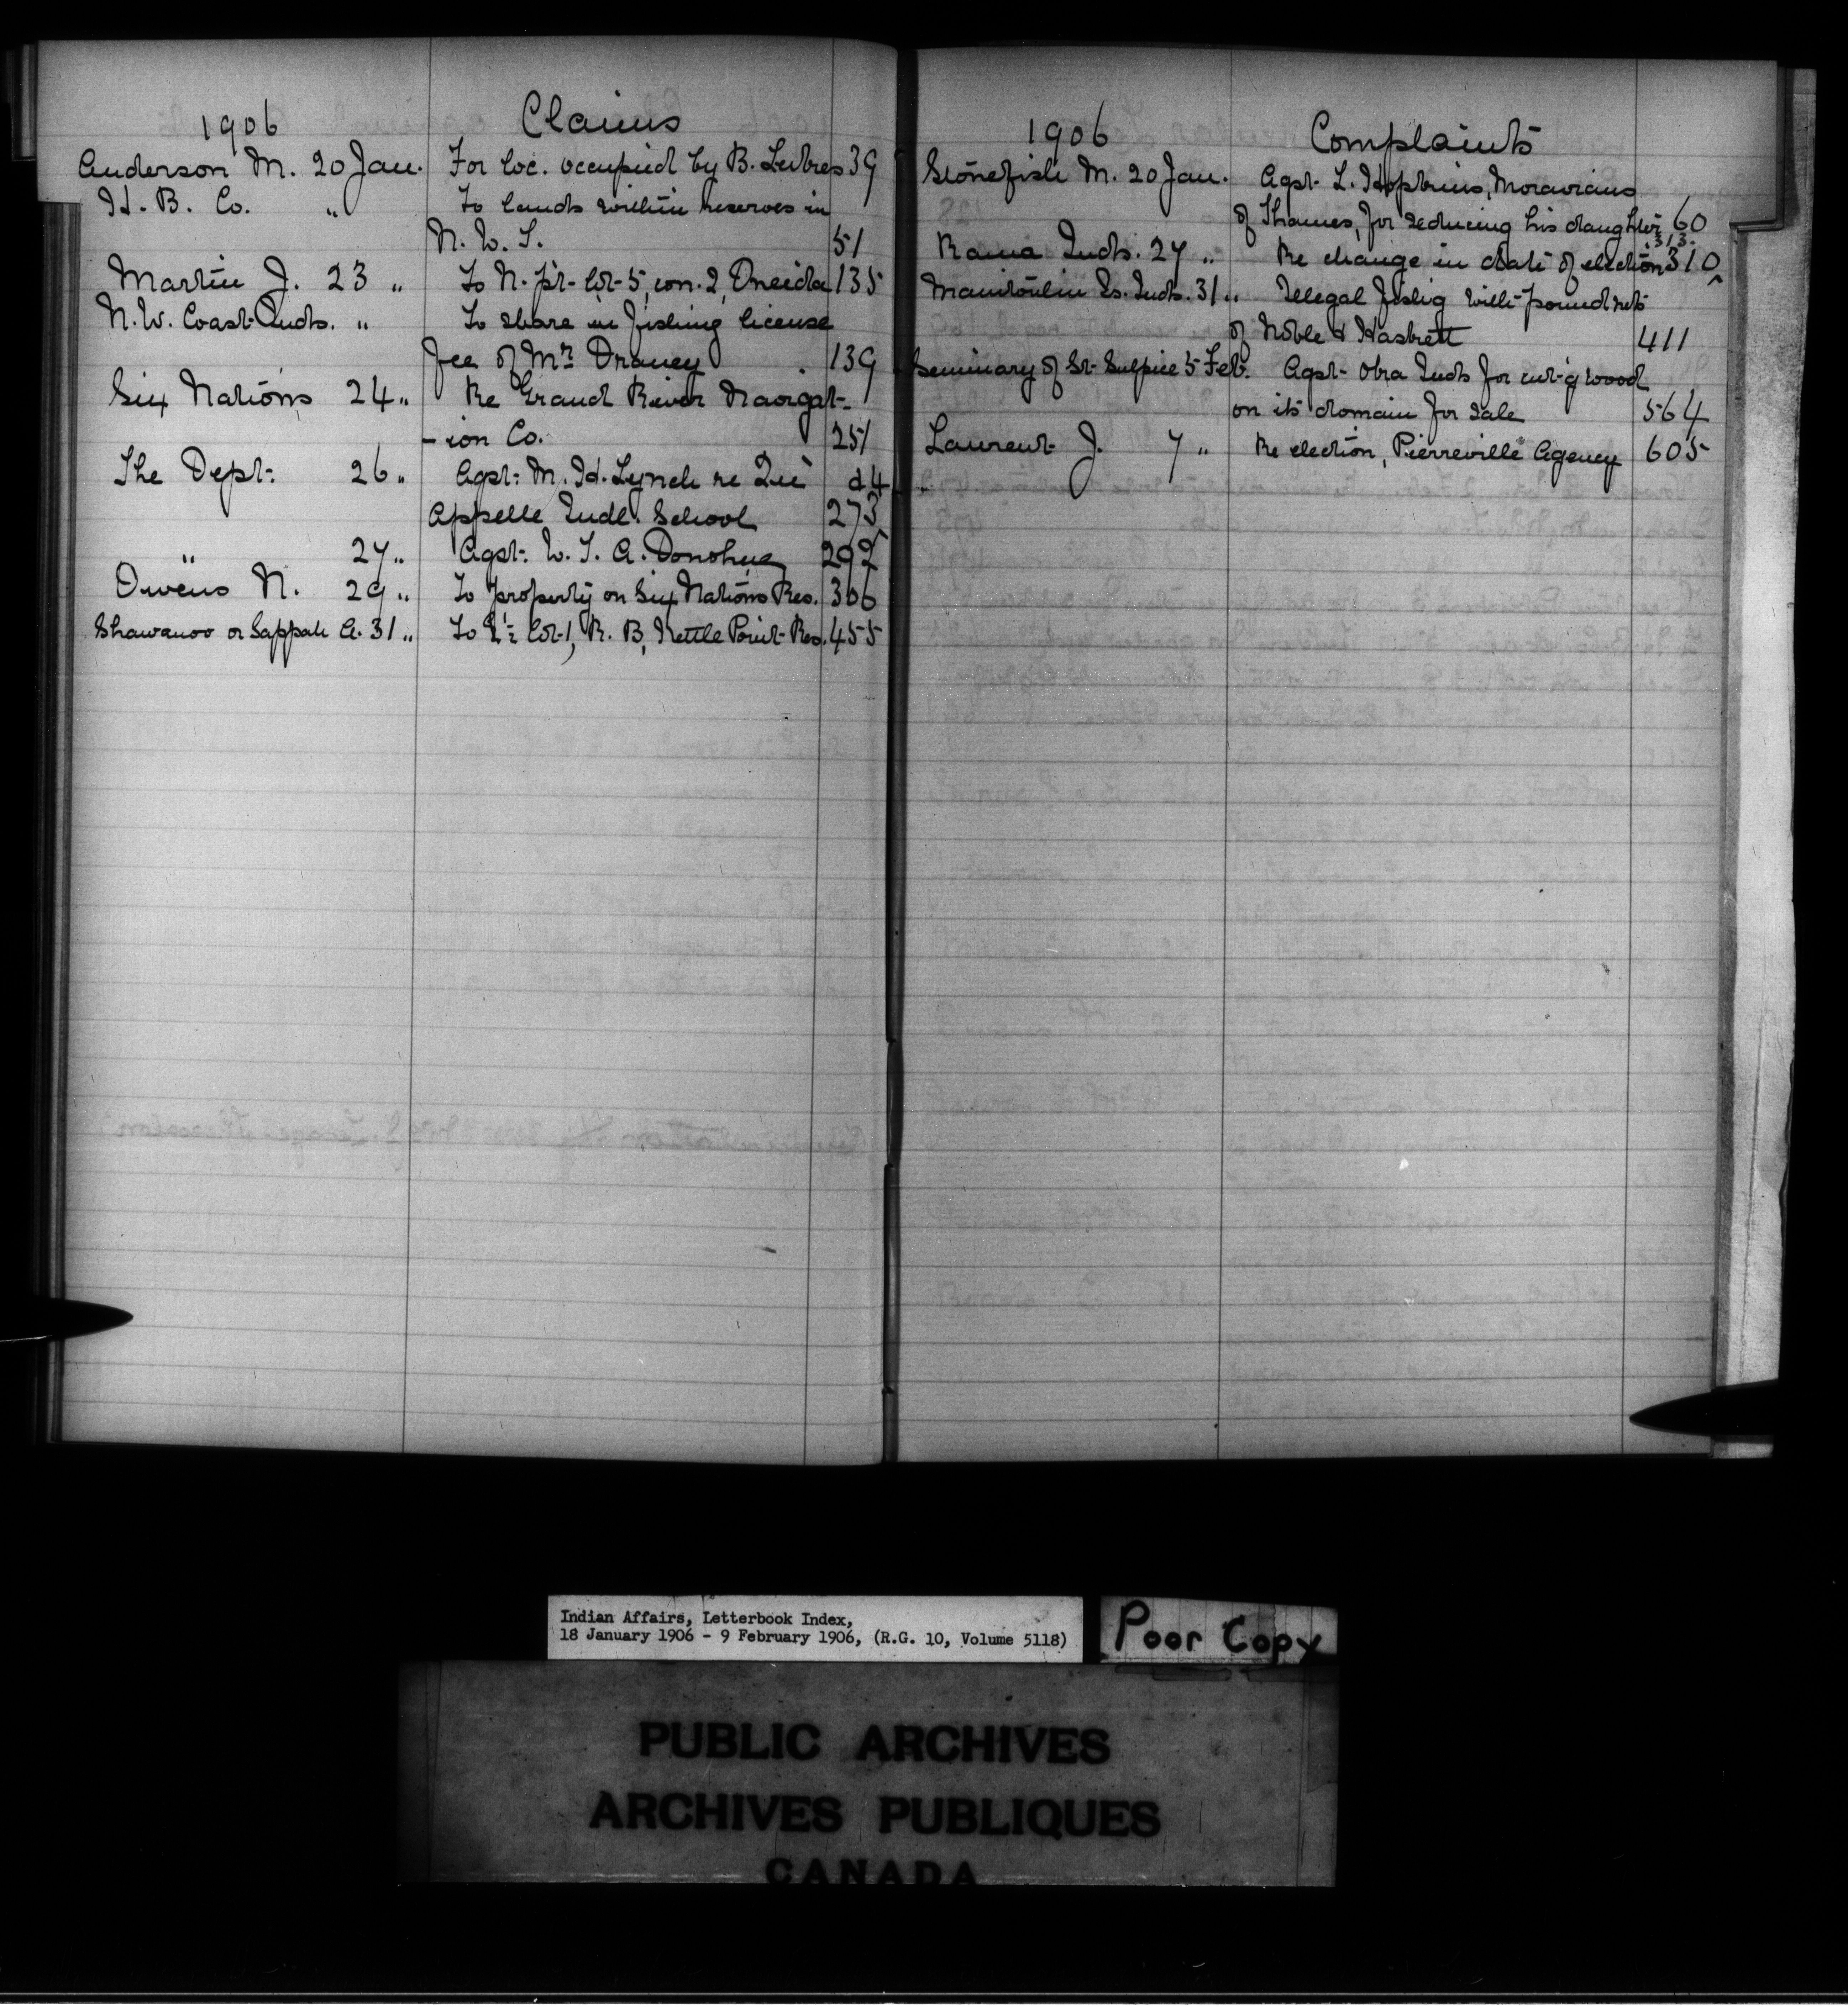 1906 Claims
Anderson M. 20 Jan. For loc. occupied by B. 39
H. B. Co. " To lands within reserves in
N. W. T. 51
Martin J. 23 " To N. pt. lot 5, con. 2, Oneida 135
N. W. Coast Inds. " To share in fishing license
fee of Mr. Draney 139
Six Nations 24 " Re Grand River Navigat-
-ion Co. 251
The Dept. 26 " Agst. M. H. Lynch re Qu' &
Appelle Indl. School 273
" 27 " Agst. W. T. A. Donohue 292
Owens N. 29 " To property on Six Nations Res. 306
Shawanoo or Sappah A. 31 " To lot 1, R. B, Kettle Point Res. 455
1906 Complaints
Stonefish M. 20 Jan. Agst. L. Hopkins, Moravians
of Thames, for seducing his daughter 60
313
Rama Inds. 27 " Re change in date of election 310
Manitoulin Is. Inds. 31 " Illegal fishg with pound nets
of Noble & 411
Seminary of St. Sulpice 5 Feb. Agst. Oka Inds for cut-g wood
on its domain for sale 564
Laurent J. 7 " Re election, Pierreville Agency 605
Indian Affairs, Letterbook Index,
18 January 1906 - 9 February 1906, (R.G. 10, Volume 5118)
Poor Copy
PUBLIC ARCHIVES
ARCHIVES PUBLIQUES
CANADA